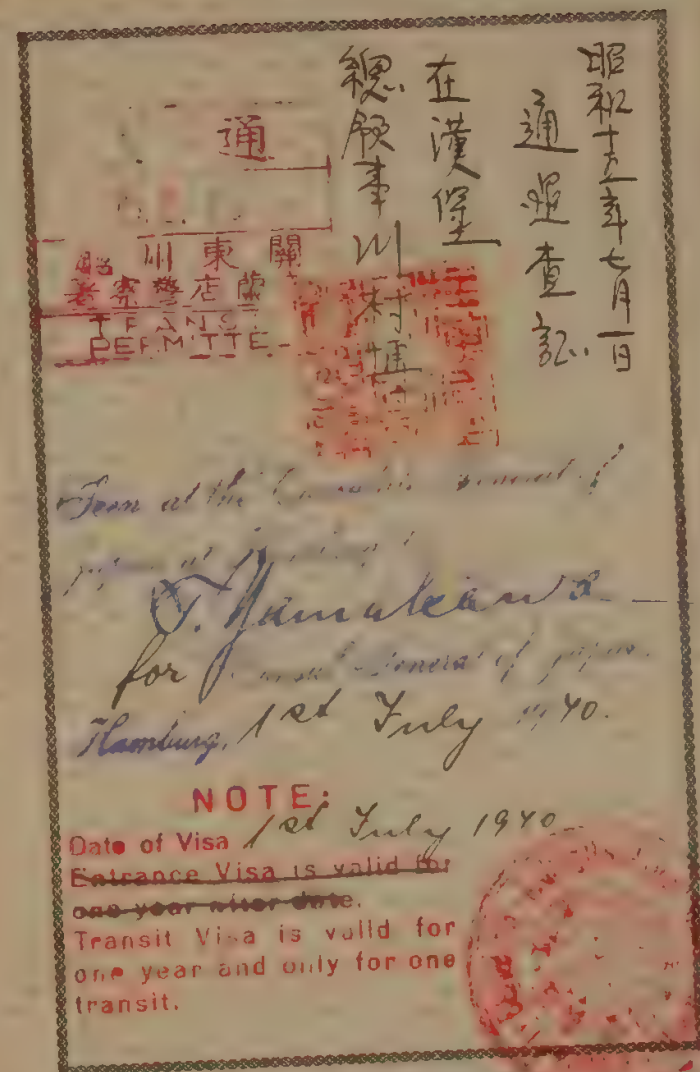 昭和十五年七月一日
通過査証
在漢堡
總領事川村
通
關東川
警察署
TRANS
PERMITTE
Seen at the Consulate General of
T. Yamakawa
for Consul General of Japan.
Hamburg, 1st July 1940.
NOTE:
Date of Visa 1st July 1940
Entrance Visa is valid for
one year after date.
Transit Visa is valid for
one year and only for one
transit.